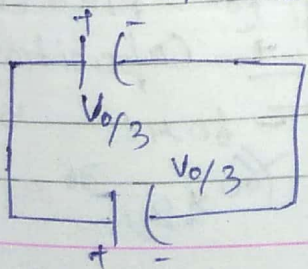 + -
V₀/3
V₀/3
+ -